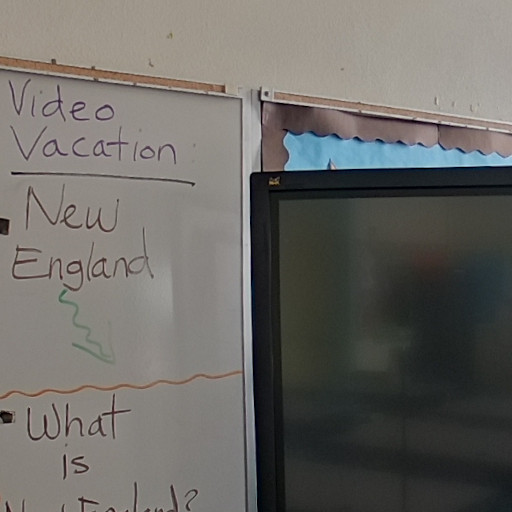 Video
Vacation
New
England
What
is
New England?